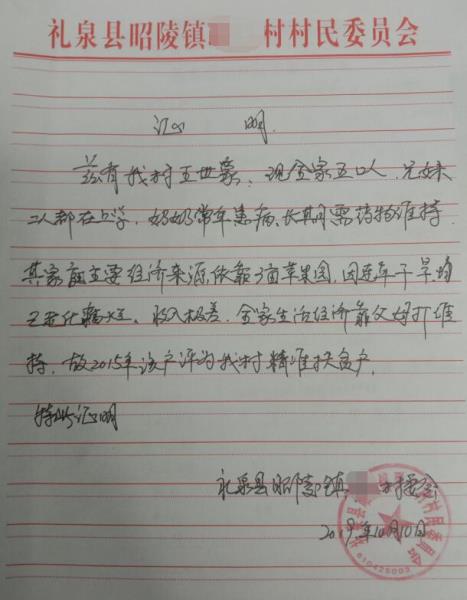 礼泉县昭陵镇 村村民委员会
证 明
兹有我村王世豪、现全家五口人、兄妹
二人都在上学、奶奶常年患病、长期需药物维持.
其家庭主要经济来源依靠3亩苹果园,因连年干旱均
老化 、收入极差、全家生活经济靠父母打 维
持,故2015年该户评为我村精准扶贫户,
特此证明
礼泉县昭陵镇
2019年10月10日
610425003